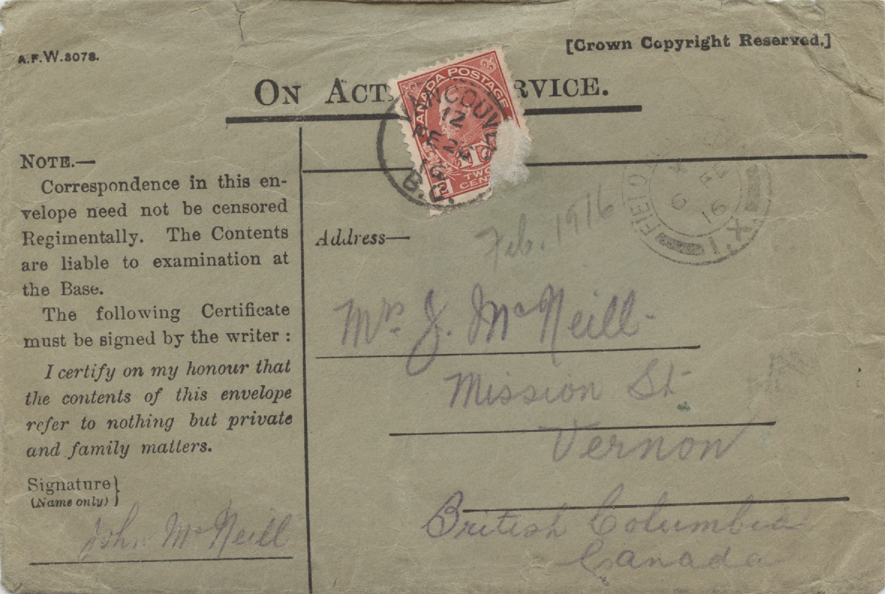 A.F.W.3078.
[Crown Copyright Reserved.]
ON ACT RVICE.
CANADA POSTAGE
TWO
CEN
VANCOUV
12
FE 24
B.C.
FIEL
16
NOTE.—
Correspondence in this en-
velope need not be censored
Regimentally. The Contents
are liable to examination at
the Base.
The following Certificate
must be signed by the writer :
I certify on my honour that
the contents of this envelope
refer to nothing but private
and family matters.
Signature
(Name only)
John McNeill
Address—
Feb. 1916
Mrs. J. McNeill
Mission St
Vernon
British Columbia
Canada